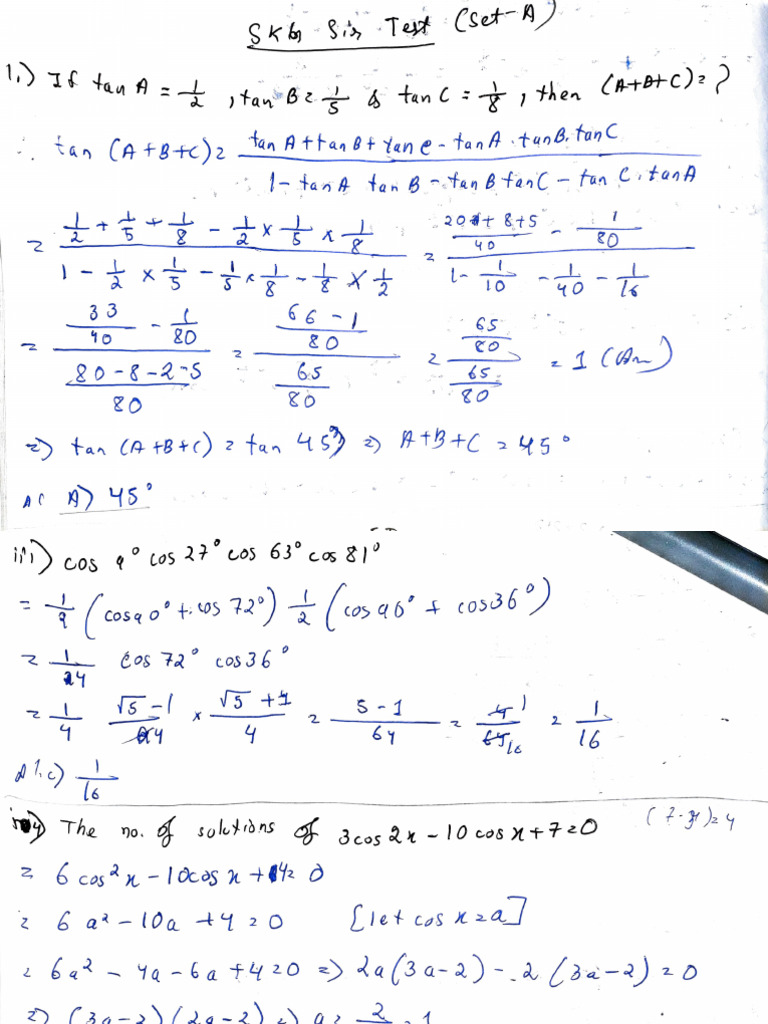 SKG Sir Test (Set-A)
1.) If tan A = 1/2 , tan B = 1/5 & tan C = 1/8 , then (A+B+C) = ?
∴ tan (A+B+C) = (tan A + tan B + tan C - tan A · tan B · tan C) / (1 - tan A tan B - tan B tan C - tan C · tan A)
= (1/2 + 1/5 + 1/8 - 1/2 × 1/5 × 1/8) / (1 - 1/2 × 1/5 - 1/5 × 1/8 - 1/8 × 1/2) = ((20 + 8 + 5)/40 - 1/80) / (1 - 1/10 - 1/40 - 1/16)
= (33/40 - 1/80) / ((80-8-2-5)/80) = ((66-1)/80) / (65/80) = (65/80) / (65/80) = 1 (Ans)
=> tan (A+B+C) = tan 45° => A+B+C = 45°
A) 45°
iii) cos 9° cos 27° cos 63° cos 81°
= 1/2 (cos 90° + cos 72°) 1/2 (cos 90° + cos 36°)
= 1/4 cos 72° cos 36°
= 1/4 (√5 - 1)/4 × (√5 + 1)/4 = (5 - 1)/64 = 4/64 = 1/16
c) 1/16
4) The no. of solutions of 3cos2x - 10cosx + 7 = 0 (7-3) = 4
= 6cos²x - 10cosx + 4 = 0
= 6a² - 10a + 4 = 0 [let cos x = a]
= 6a² - 4a - 6a + 4 = 0 => 2a(3a-2) - 2(3a-2) = 0
=> (3a-2)(2a-2) => a = 2/ 1